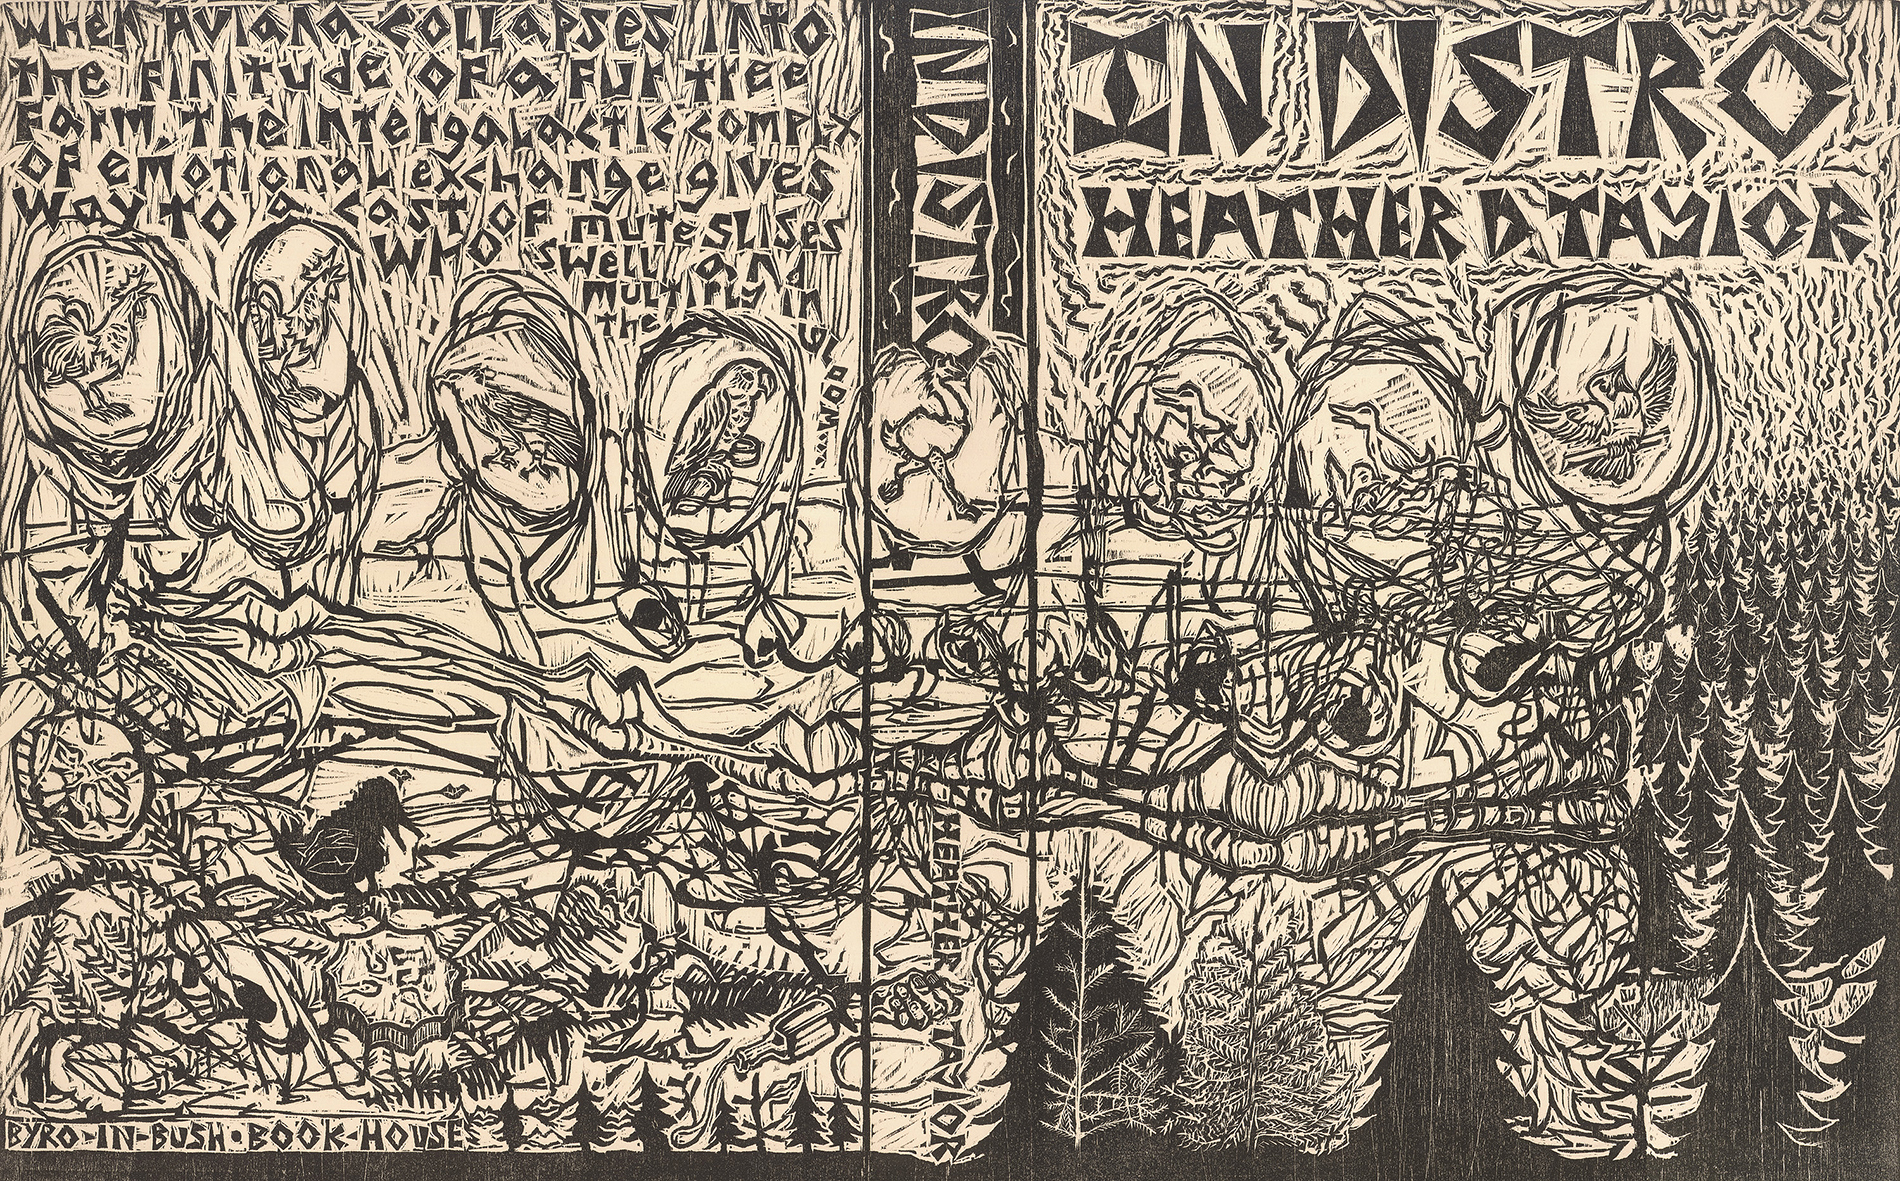 WHEN AVIANA COLLAPSES INTO
the FINITUDE OF A FUR tree
Farm, the intergalactic complx
OF emotional exchange gives
way to a cast OF mute SLISES
WHO SWELL and
MULTIPLY in
the
BYRO-IN-BUSH•BOOK-HOUSE
INDISTRO
HEATHER
TAYLOR
INDISTRO
HEATHER D TAYLOR